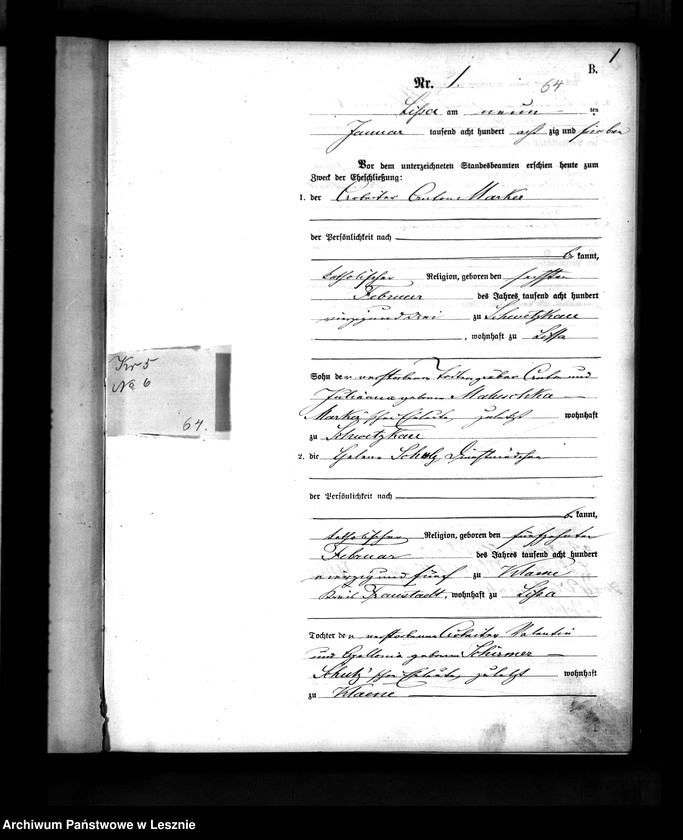 1
B.
Nr. 1.
64
Lissa am neun ten
Januar tausend acht hundert acht zig und sieben
Vor dem unterzeichneten Standesbeamten erschien heute zum
Zweck der Eheschließung:
1. der Arbeiter Anton Marker
der Persönlichkeit nach
be kannt,
katholischer Religion, geboren den sechsten
Februar des Jahres tausend acht hundert
vierzig und drei zu Schwetzkau
, wohnhaft zu Lissa
Sohn der verstorbenen Todtengräber Anton und
Julianna geborene Matuschka
Marker'schen Eheleute, zuletzt wohnhaft
zu Schwetzkau
2. die Helene Schulz, Dienstmädchen
der Persönlichkeit nach
be kannt,
katholischer Religion, geboren den fünfzehnten
Februar des Jahres tausend acht hundert
vierzig und fünf zu
Kreis Fraustadt, wohnhaft zu Lissa
Tochter der verstorbenen Arbeiter Valentin
und Apollonia geborene Schirmer
Schulz'schen Eheleute, zuletzt wohnhaft
zu
Kr 5
No 6
64.
Archiwum Państwowe w Lesznie